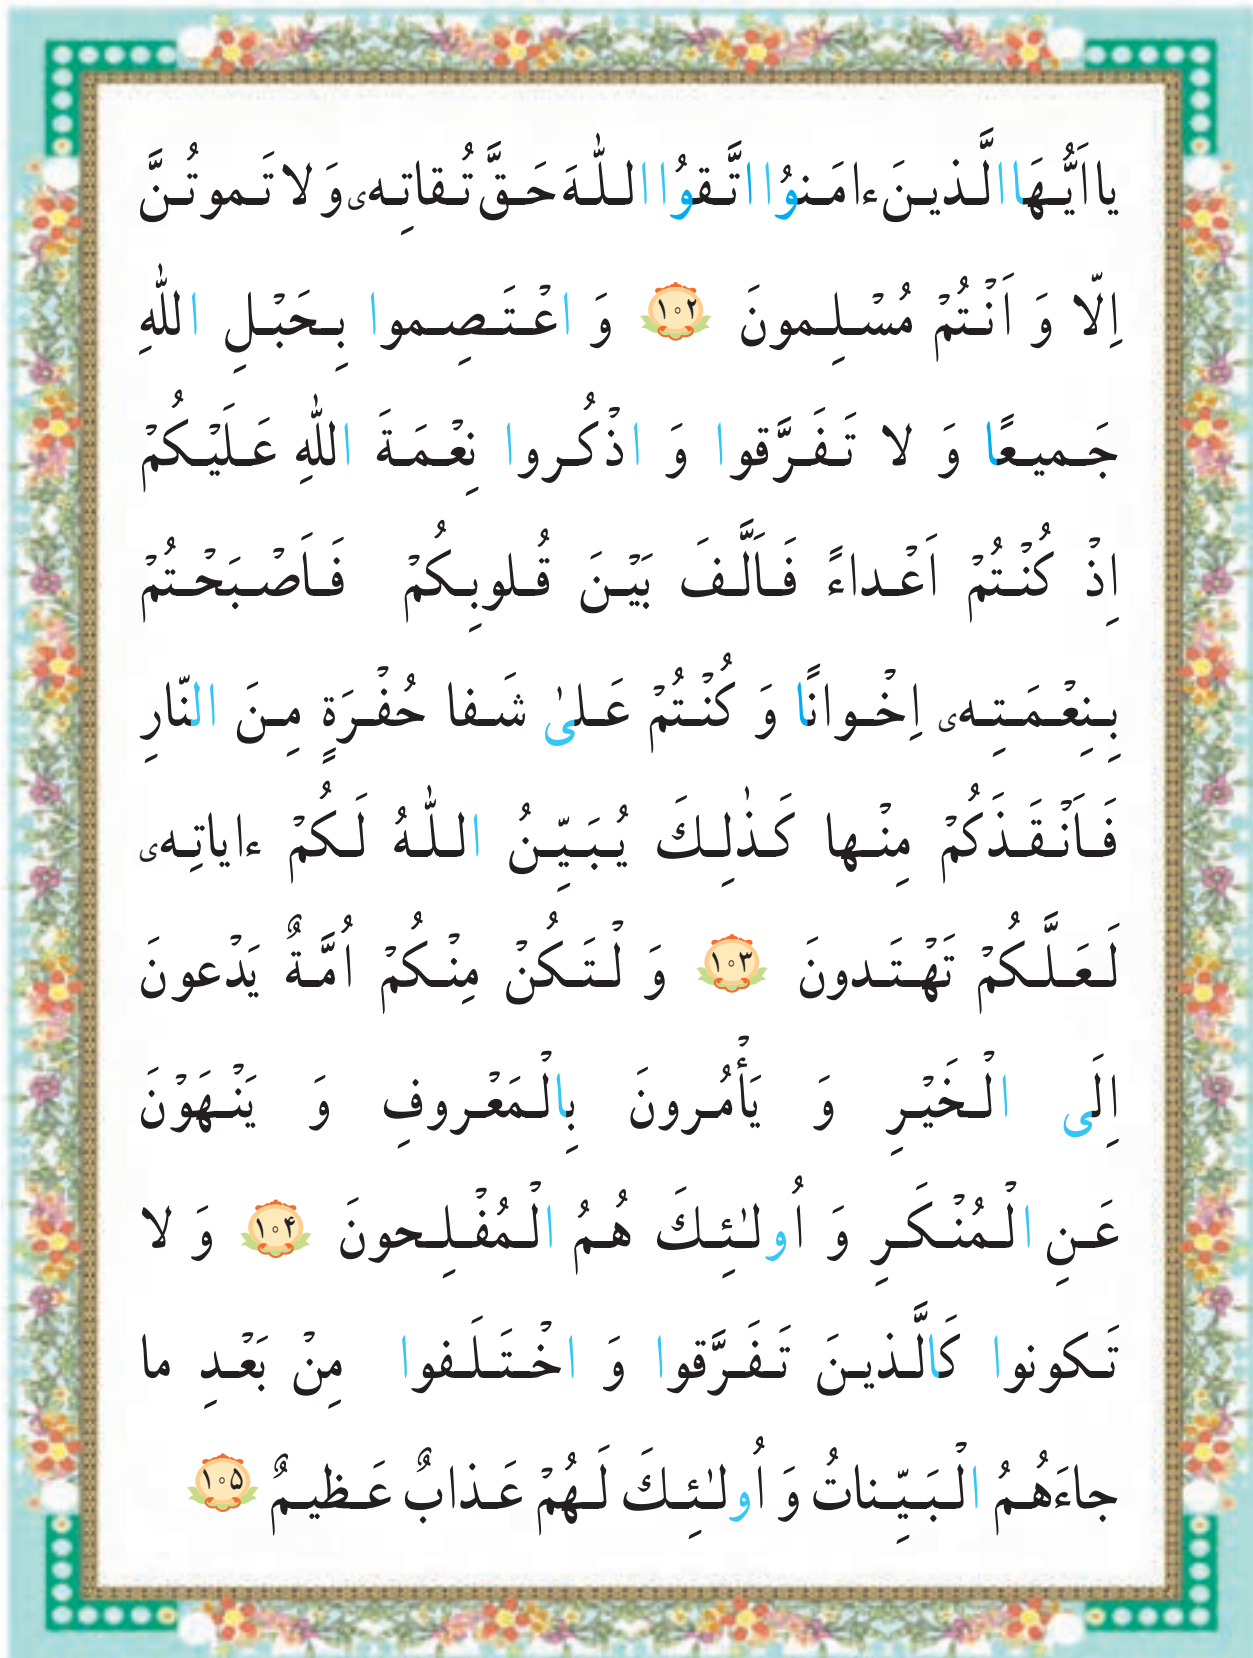 يا اَيُّهَا الَّذينَ ءامَنوُا اتَّقوُا اللّٰهَ حَقَّ تُقاتِهى وَ لا تَموتُنَّ
اِلّا وَ اَنْتُمْ مُسْلِمونَ ۱۰۲ وَ اعْتَصِموا بِحَبْلِ اللّٰهِ
جَميعًا وَ لا تَفَرَّقوا وَ اذْكُروا نِعْمَةَ اللّٰهِ عَلَيْكُمْ
اِذْ كُنْتُمْ اَعْداءً فَاَلَّفَ بَيْنَ قُلوبِكُمْ فَاَصْبَحْتُمْ
بِنِعْمَتِهى اِخْوانًا وَ كُنْتُمْ عَلىٰ شَفا حُفْرَةٍ مِنَ النّارِ
فَاَنْقَذَكُمْ مِنْها كَذٰلِكَ يُبَيِّنُ اللّٰهُ لَكُمْ ءاياتِهى
لَعَلَّكُمْ تَهْتَدونَ ۱۰۳ وَ لْتَكُنْ مِنْكُمْ اُمَّةٌ يَدْعونَ
اِلَى الْخَيْرِ وَ يَأْمُرونَ بِالْمَعْروفِ وَ يَنْهَوْنَ
عَنِ الْمُنْكَرِ وَ اُولٰئِكَ هُمُ الْمُفْلِحونَ ۱۰۴ وَ لا
تَكونوا كَالَّذينَ تَفَرَّقوا وَ اخْتَلَفوا مِنْ بَعْدِ ما
جاءَهُمُ الْبَيِّناتُ وَ اُولٰئِكَ لَهُمْ عَذابٌ عَظيمٌ ۱۰۵